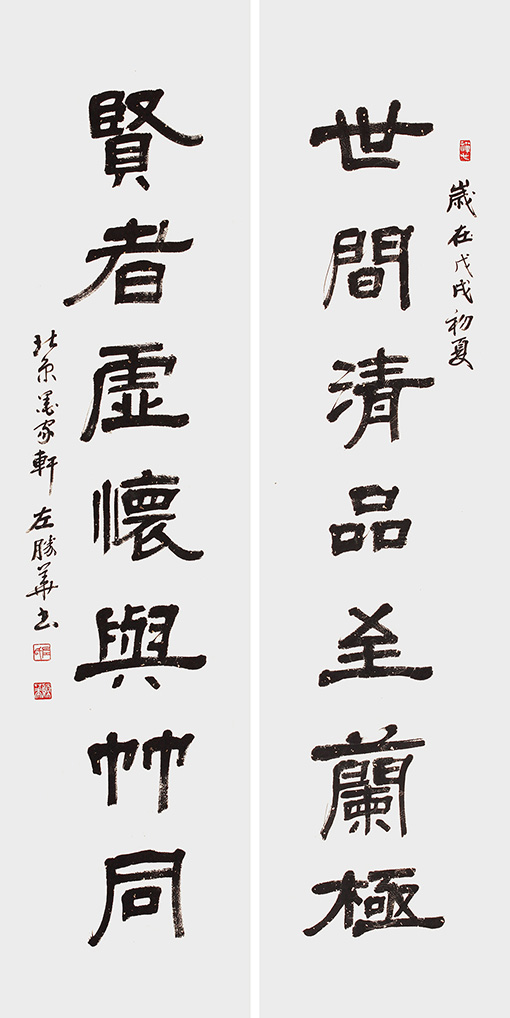 歲在戊戌初夏
世間清品至蘭極
賢者虛懷與竹同
北京墨家軒左勝華书